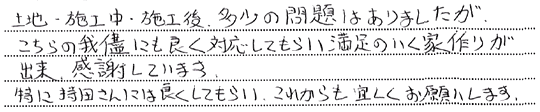 土地・施工中・施工後、多少の問題はありましたが、
こちらの我儘にも良く対応してもらい満足のいく家作りが
出来、感謝しています。
特に持田さんには良くしてもらい、これからも宜しくお願いします。